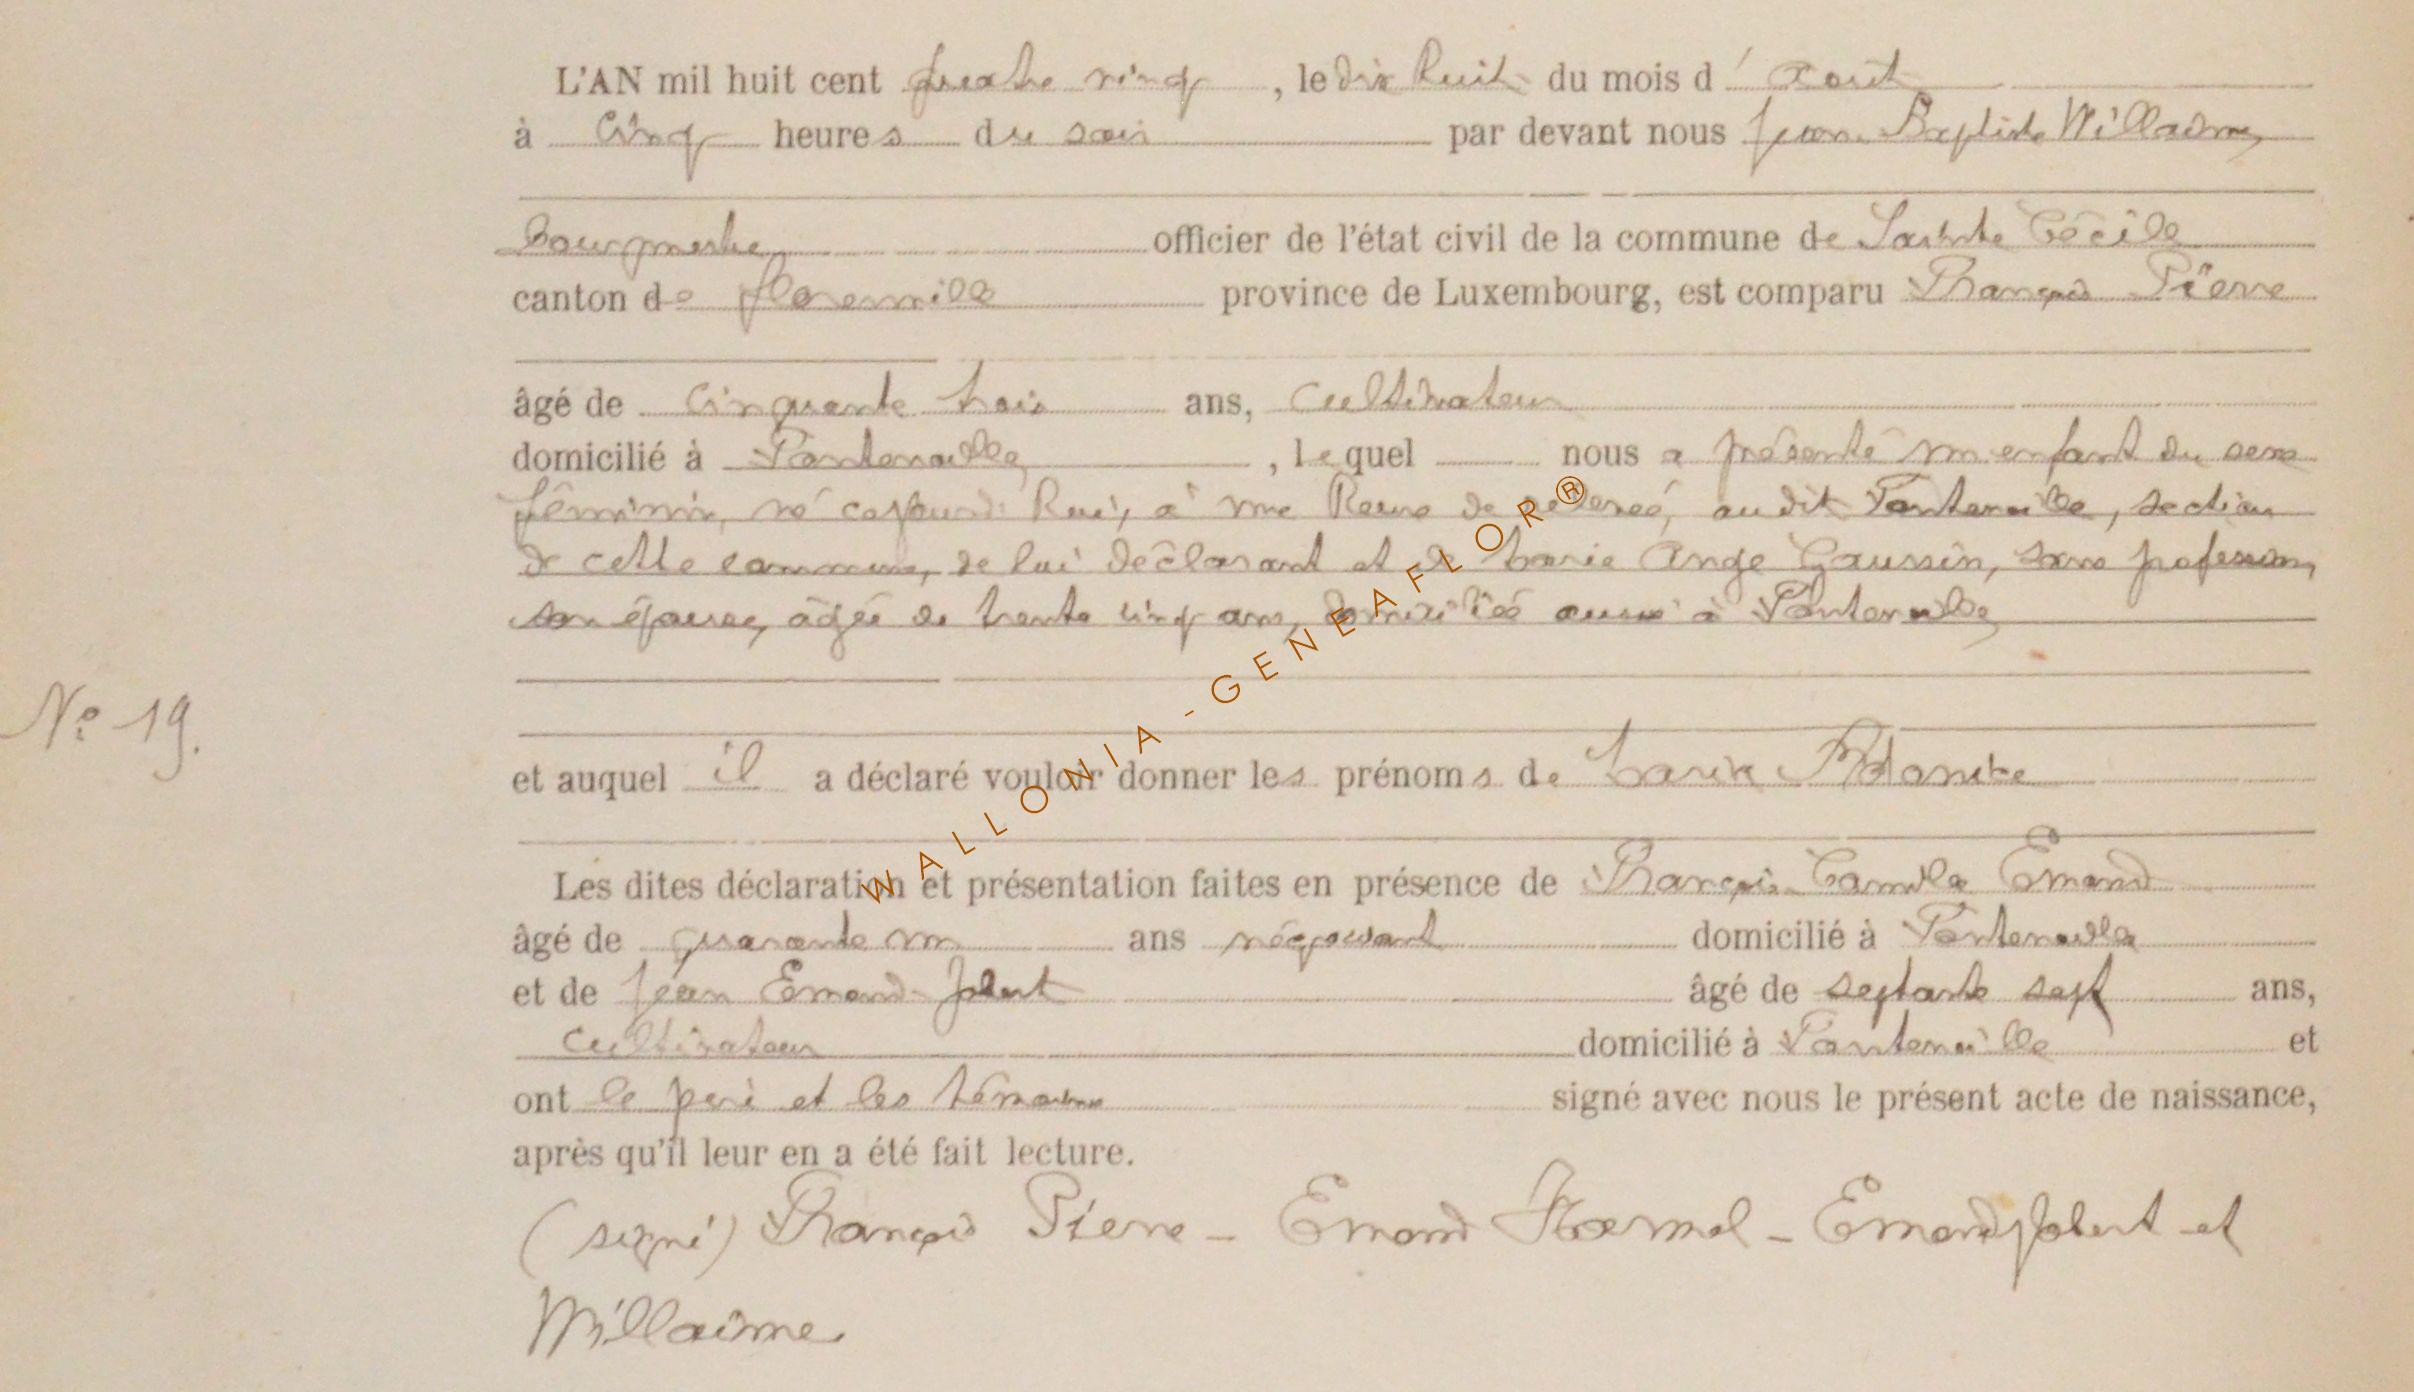 L'AN mil huit cent quatre vingt, le dix huit du mois d'Aout
à Cinq heures du soir par devant nous Jean Baptiste Willaime,
Bourgmestre officier de l'état civil de la commune de Sainte Cécile
canton de florenville province de Luxembourg, est comparu François Pierre
âgé de Cinquante trois ans, Cultivateur
domicilié à Fontenoille, lequel nous a présenté un enfant du sexe
féminin, né cejourd'hui, à une heure de relevée, au dit Fontenoille, section
de cette commune, de lui déclarant et de Marie Ange Gaussin, sans profession,
son épouse, âgée de trente cinq ans, domiciliée aussi à Fontenoille
No 19.
et auquel il a déclaré vouloir donner les prénoms de Marie
Les dites déclaration et présentation faites en présence de François Camille Emond
âgé de quarante un ans négociant domicilié à Fontenoille
et de Jean Emond Jobert âgé de septante sept ans,
cultivateur domicilié à Fontenoille et
ont le père et les témoins signé avec nous le présent acte de naissance,
après qu'il leur en a été fait lecture.
(signé) François Pierre - Emond - Emond Jobert et
Willaime
WALLONIA - GENEAFLOR®